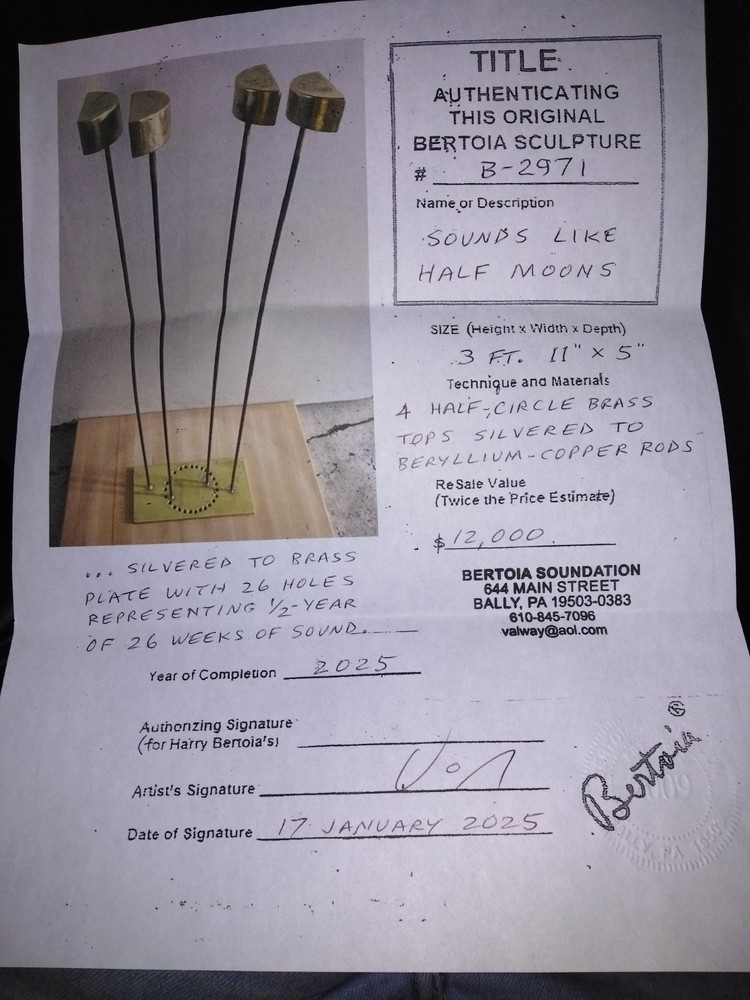 TITLE
AUTHENTICATING
THIS ORIGINAL
BERTOIA SCULPTURE
# B-2971
Name or Description
SOUNDS LIKE
HALF MOONS
SIZE (Height x Width x Depth)
3 FT. 11" x 5"
Technique and Materials
4 HALF-CIRCLE BRASS
TOPS SILVERED TO
BERYLLIUM-COPPER RODS
ReSale Value
(Twice the Price Estimate)
$12,000.
BERTOIA SOUNDATION
644 MAIN STREET
BALLY, PA 19503-0383
610-845-7096
valway@aol.com
... SILVERED TO BRASS
PLATE WITH 26 HOLES
REPRESENTING 1/2-YEAR
OF 26 WEEKS OF SOUND.
Year of Completion 2025
Authorizing Signature
(for Harry Bertoia's)
Artist's Signature
Date of Signature 17 JANUARY 2025
Bertoia ®